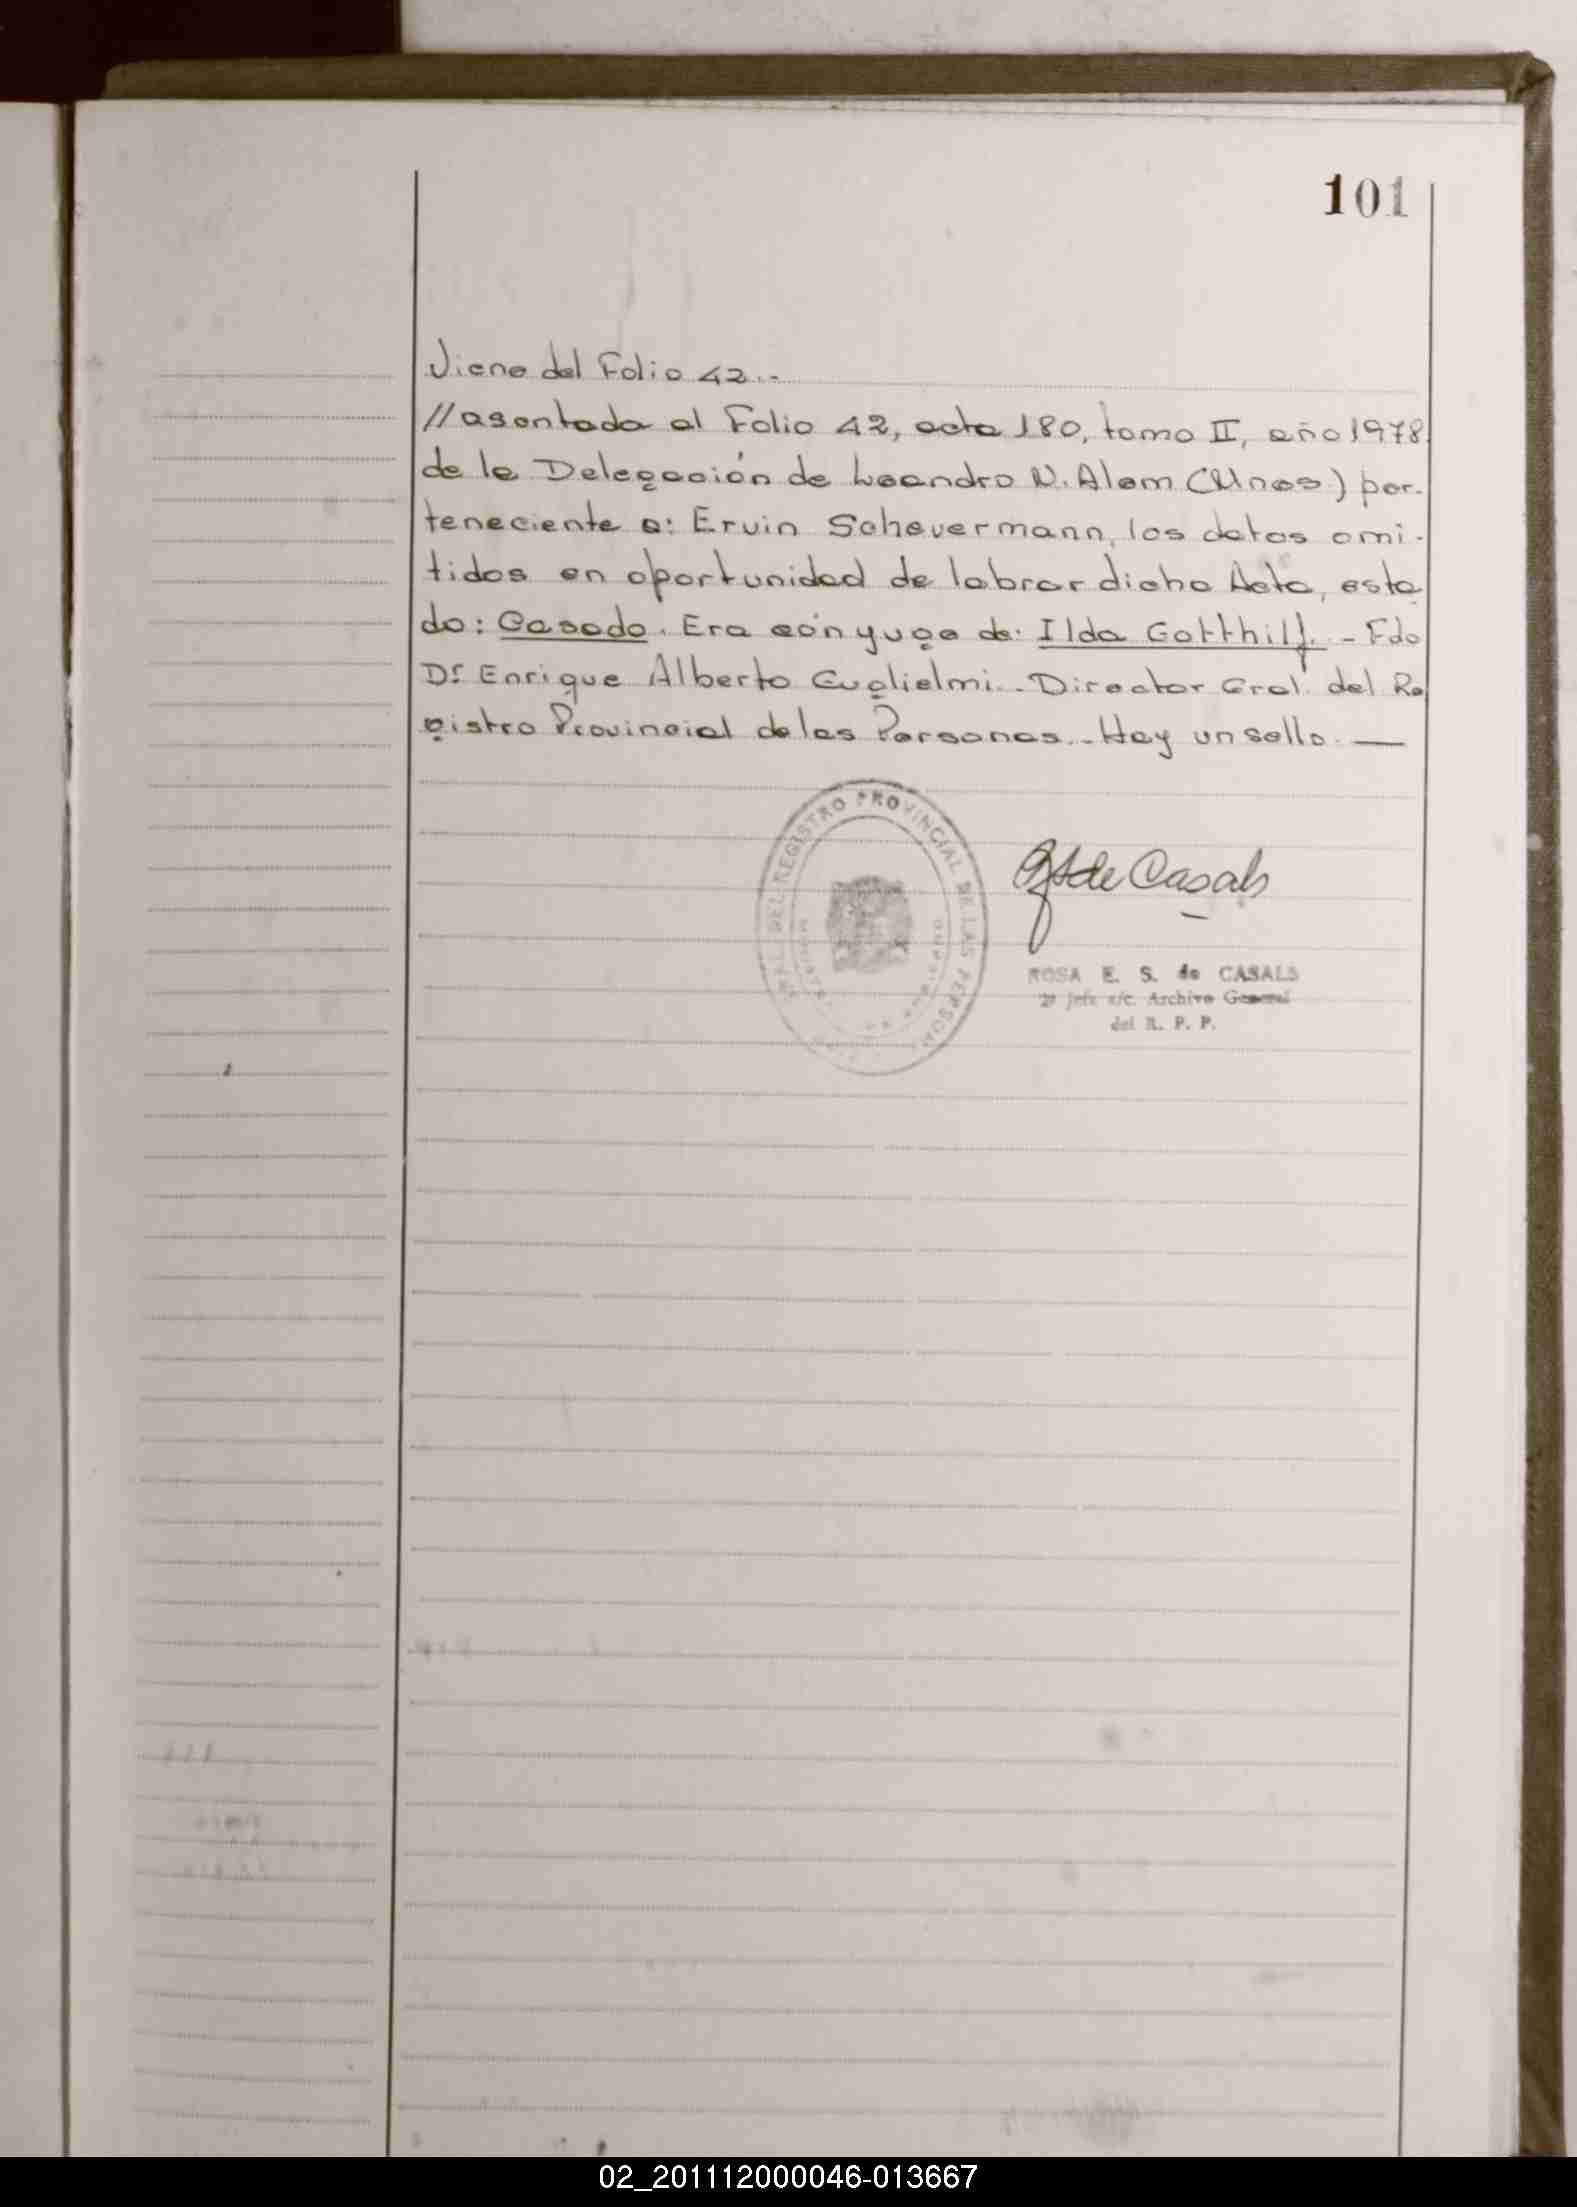 101
Viene del Folio 42.-
//asentada al Folio 42, acta 180, tomo II, año 1978
de la Delegación de Leandro N. Alem (Mnes) per-
teneciente a: Ervin Schevermann, los datos omi-
tidos en oportunidad de labrar dicha Acta, esta
do: Casado. Era cónyuge de: Ilda Gotthilf. - Fdo
Dr. Enrique Alberto Guglielmi.- Director Gral. del Re
gistro Provincial de las Personas.- Hay un sello. —
DEL REGISTRO PROVINCIAL DE LAS PERSONAS
de Casals
ROSA E. S. de CASALS
2º Jefe a/c. Archivo General
del R. P. P.
02_201112000046-013667